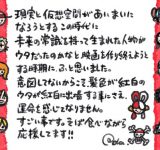 現実と仮想空間があいまいに
なろうとするこの時代に
本来の常識を持って生まれた人物が
ウタだったのかなと映画を作り終えようと
する時期に、ふと思いました。
意図してないからこそ、髪色が紅白の
ウタが紅白に出場する事にさえ、
運命を感じてなりません。
すごい事です。そばで食べながら
応援してます!!